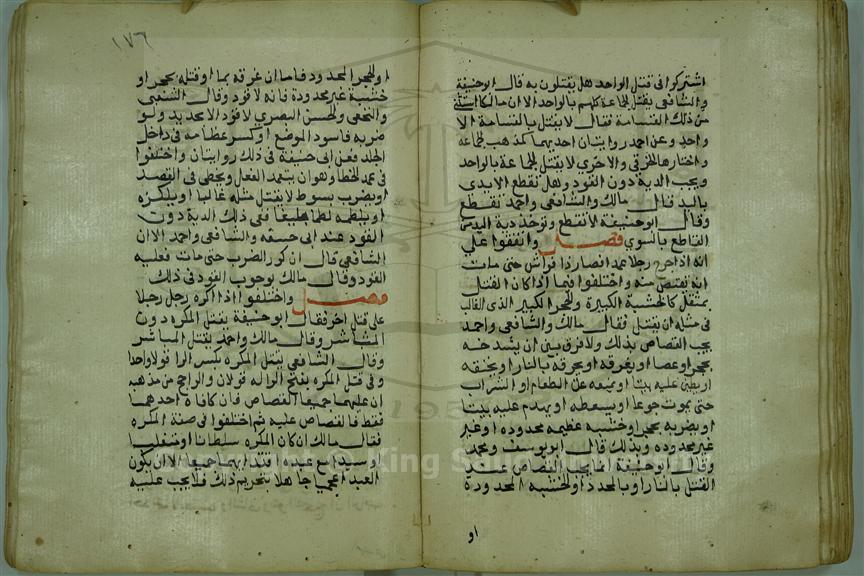 اشتركوا في قتل الواحد هل يقتلون به قال ابو حنيفة
والشافعي يقتل الجماعة كلهم بالواحد الا ان مالكا استثنى
من ذلك القسامة فقال لا يقتل بالقسامة الا
واحد وعن احمد روايتان احديهما كمذهب الجماعه
واختارها الخرقي والاخري لا يقتل الجماعة بالواحد
ويجب الدية دون القود وهل تقطع الايدي
باليد قال مالك والشافعي واحمد تقطع
وقال ابو حنيفة لا تقطع وتوخذ دية اليد من
القاطع بالسوي فصل واتفقوا علي
انه اذا جرح رجلا عمدا فصار ذا فراش حتى مات
انه يقتص منه واختلفوا فيما اذا كان القتل
بمثقل كالخشبة الكبيرة والحجر الكبير الذي الغالب
في مثله ان يقتل فقال مالك والشافعي واحمد
يجب القصاص بذلك ولا فرق بين ان يشدخه
بحجر او عصا او يغرقه او يحرقه بالنار او يخنقه
او يطين عليه بيتا او يمنعه عن الطعام او الشراب
حتى يموت جوعا او يسعطه او يهدم عليه بيتا
او يضربه بحجر او خشبة عظيمه محدوده او غير
غير محدوده وبذلك قال ابو يوسف ومحمد
وقال ابو حنيفة انما يجب القصاص عند
القتل بالنار او بالمحدد او الخشبه المحدودة
او
١٧٦
او الحجر المحدود فاما ان غرقه بما او قتله بحجر او
خشبة غير محدودة فانه لا قود وقال الشعبي
والنخعي والحسن البصري لا قود الا بحديد ولو
ضربه فاسود الموضع او كسر عظامه في داخل
الجلد فعن ابي حنيفة في ذلك روايتان واختلفوا
في عمد الخطا وهو ان يتعمد الفعل ويخطي في القصد
او يضرب بسوط لا يقتل مثله غالبا او يلكزه
او يلطمه لطما بليغا ففي ذلك الدية دون
القود عند ابي حنيفه والشافعي واحمد الا ان
الشافعي قال ان كرر الضرب حتى مات فعليه
القود وقال مالك بوجوب القود في ذلك
فصل واختلفوا اذا اكره رجل رجلا
على قتل اخر فقال ابو حنيفة يقتل المكره دون
المباشر وقال مالك واحمد يقتل المباشر
وقال الشافعي يقتل المكره بكسر الرا قولا واحدا
وفي قتل المكره بفتح الرا له قولان والراجح من مذهبه
ان عليهما جميعا القصاص فان كافاه احدهما
فقط فالقصاص عليه ثم اختلفوا في صفة المكره
فقال مالك ان كان المكره سلطانا او متغلبا
او سيدا مع عبده اقتد منهما جميعا الا ان يكون
العبد اعجميا جاهلا بتحريم ذلك فلا يجب عليه